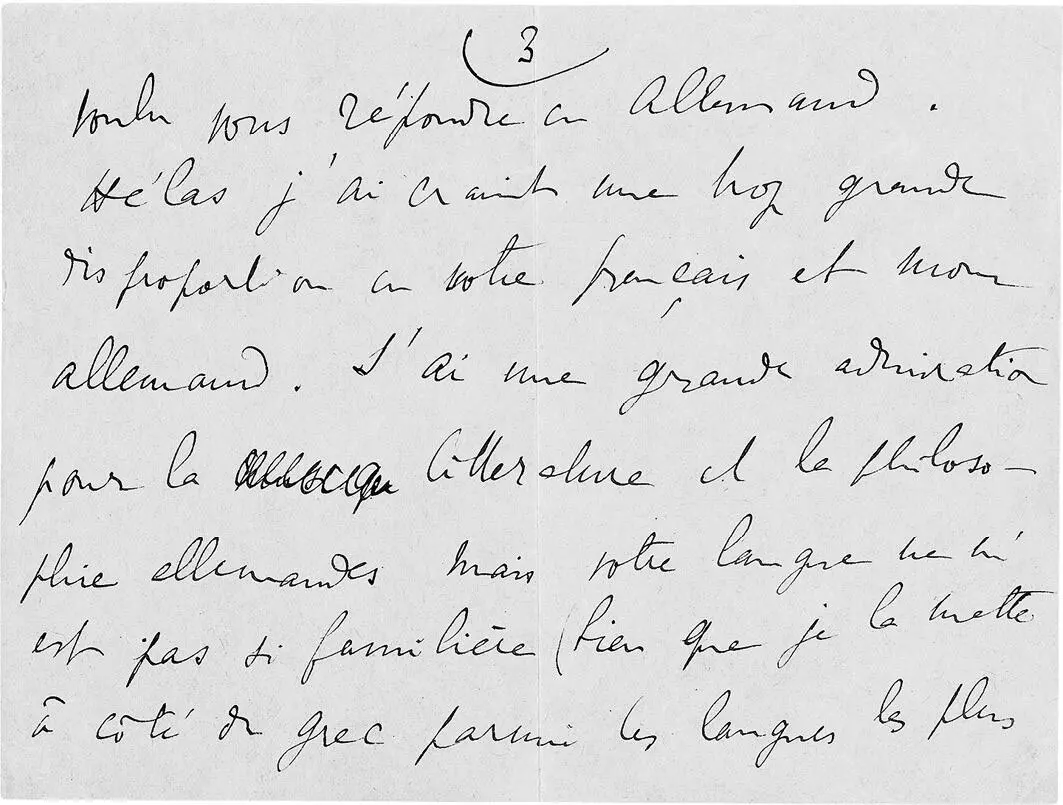 3
voulu vous répondre en Allemand.
Hélas j'ai craint une trop grande
disproportion en votre français et mon
allemand. J'ai une grande admiration
pour la littérature et la philoso-
phie allemandes mais votre langue ne m'
est pas si familière (bien que je la mette
à côté du grec parmi les langues les plus